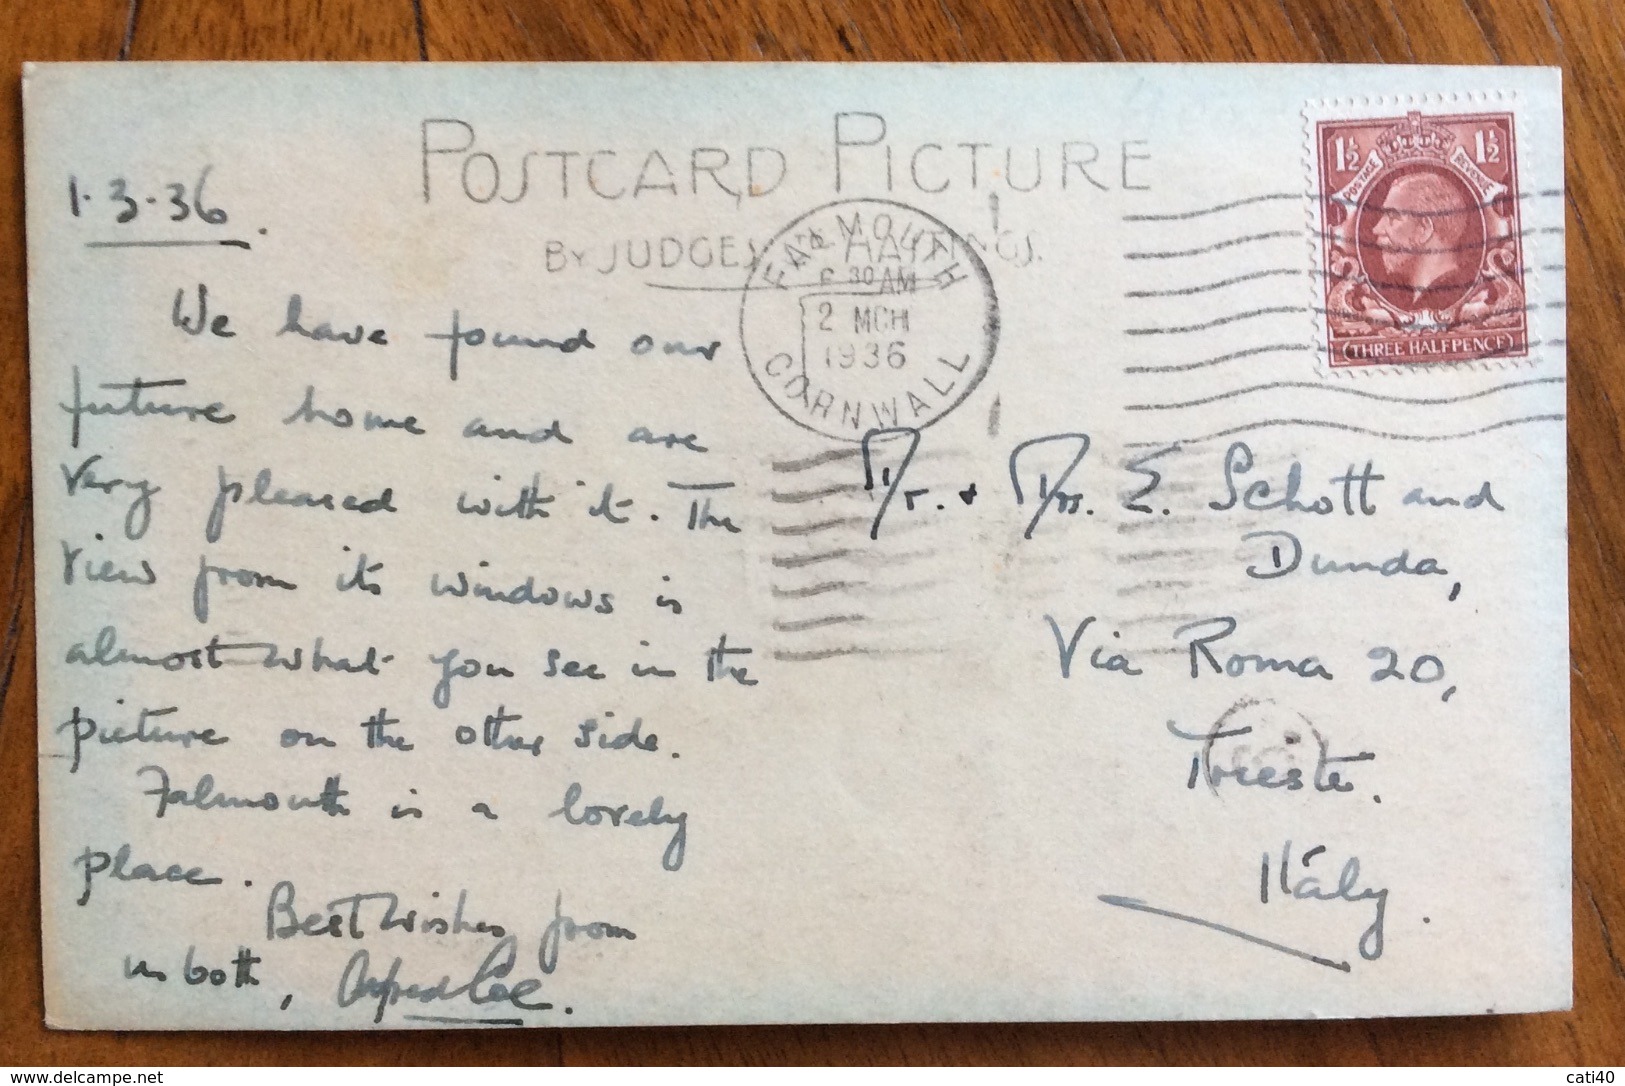 POSTCARD PICTURE
BY JUDGES HASTINGS.
1.3.36.
We have found our
future home and are
very pleased with it. The
view from its windows is
almost what you see in the
picture on the other side.
Falmouth is a lovely
place.
Best Wishes from
us both, Alfred
FALMOUTH
30 AM
2 MCH
1936
CORNWALL
1½ 1½
POSTAGE REVENUE
(THREE HALFPENCE)
Mr. & Mrs. E. Schott and
Dunda,
Via Roma 20,
Trieste.
Italy.
cati40